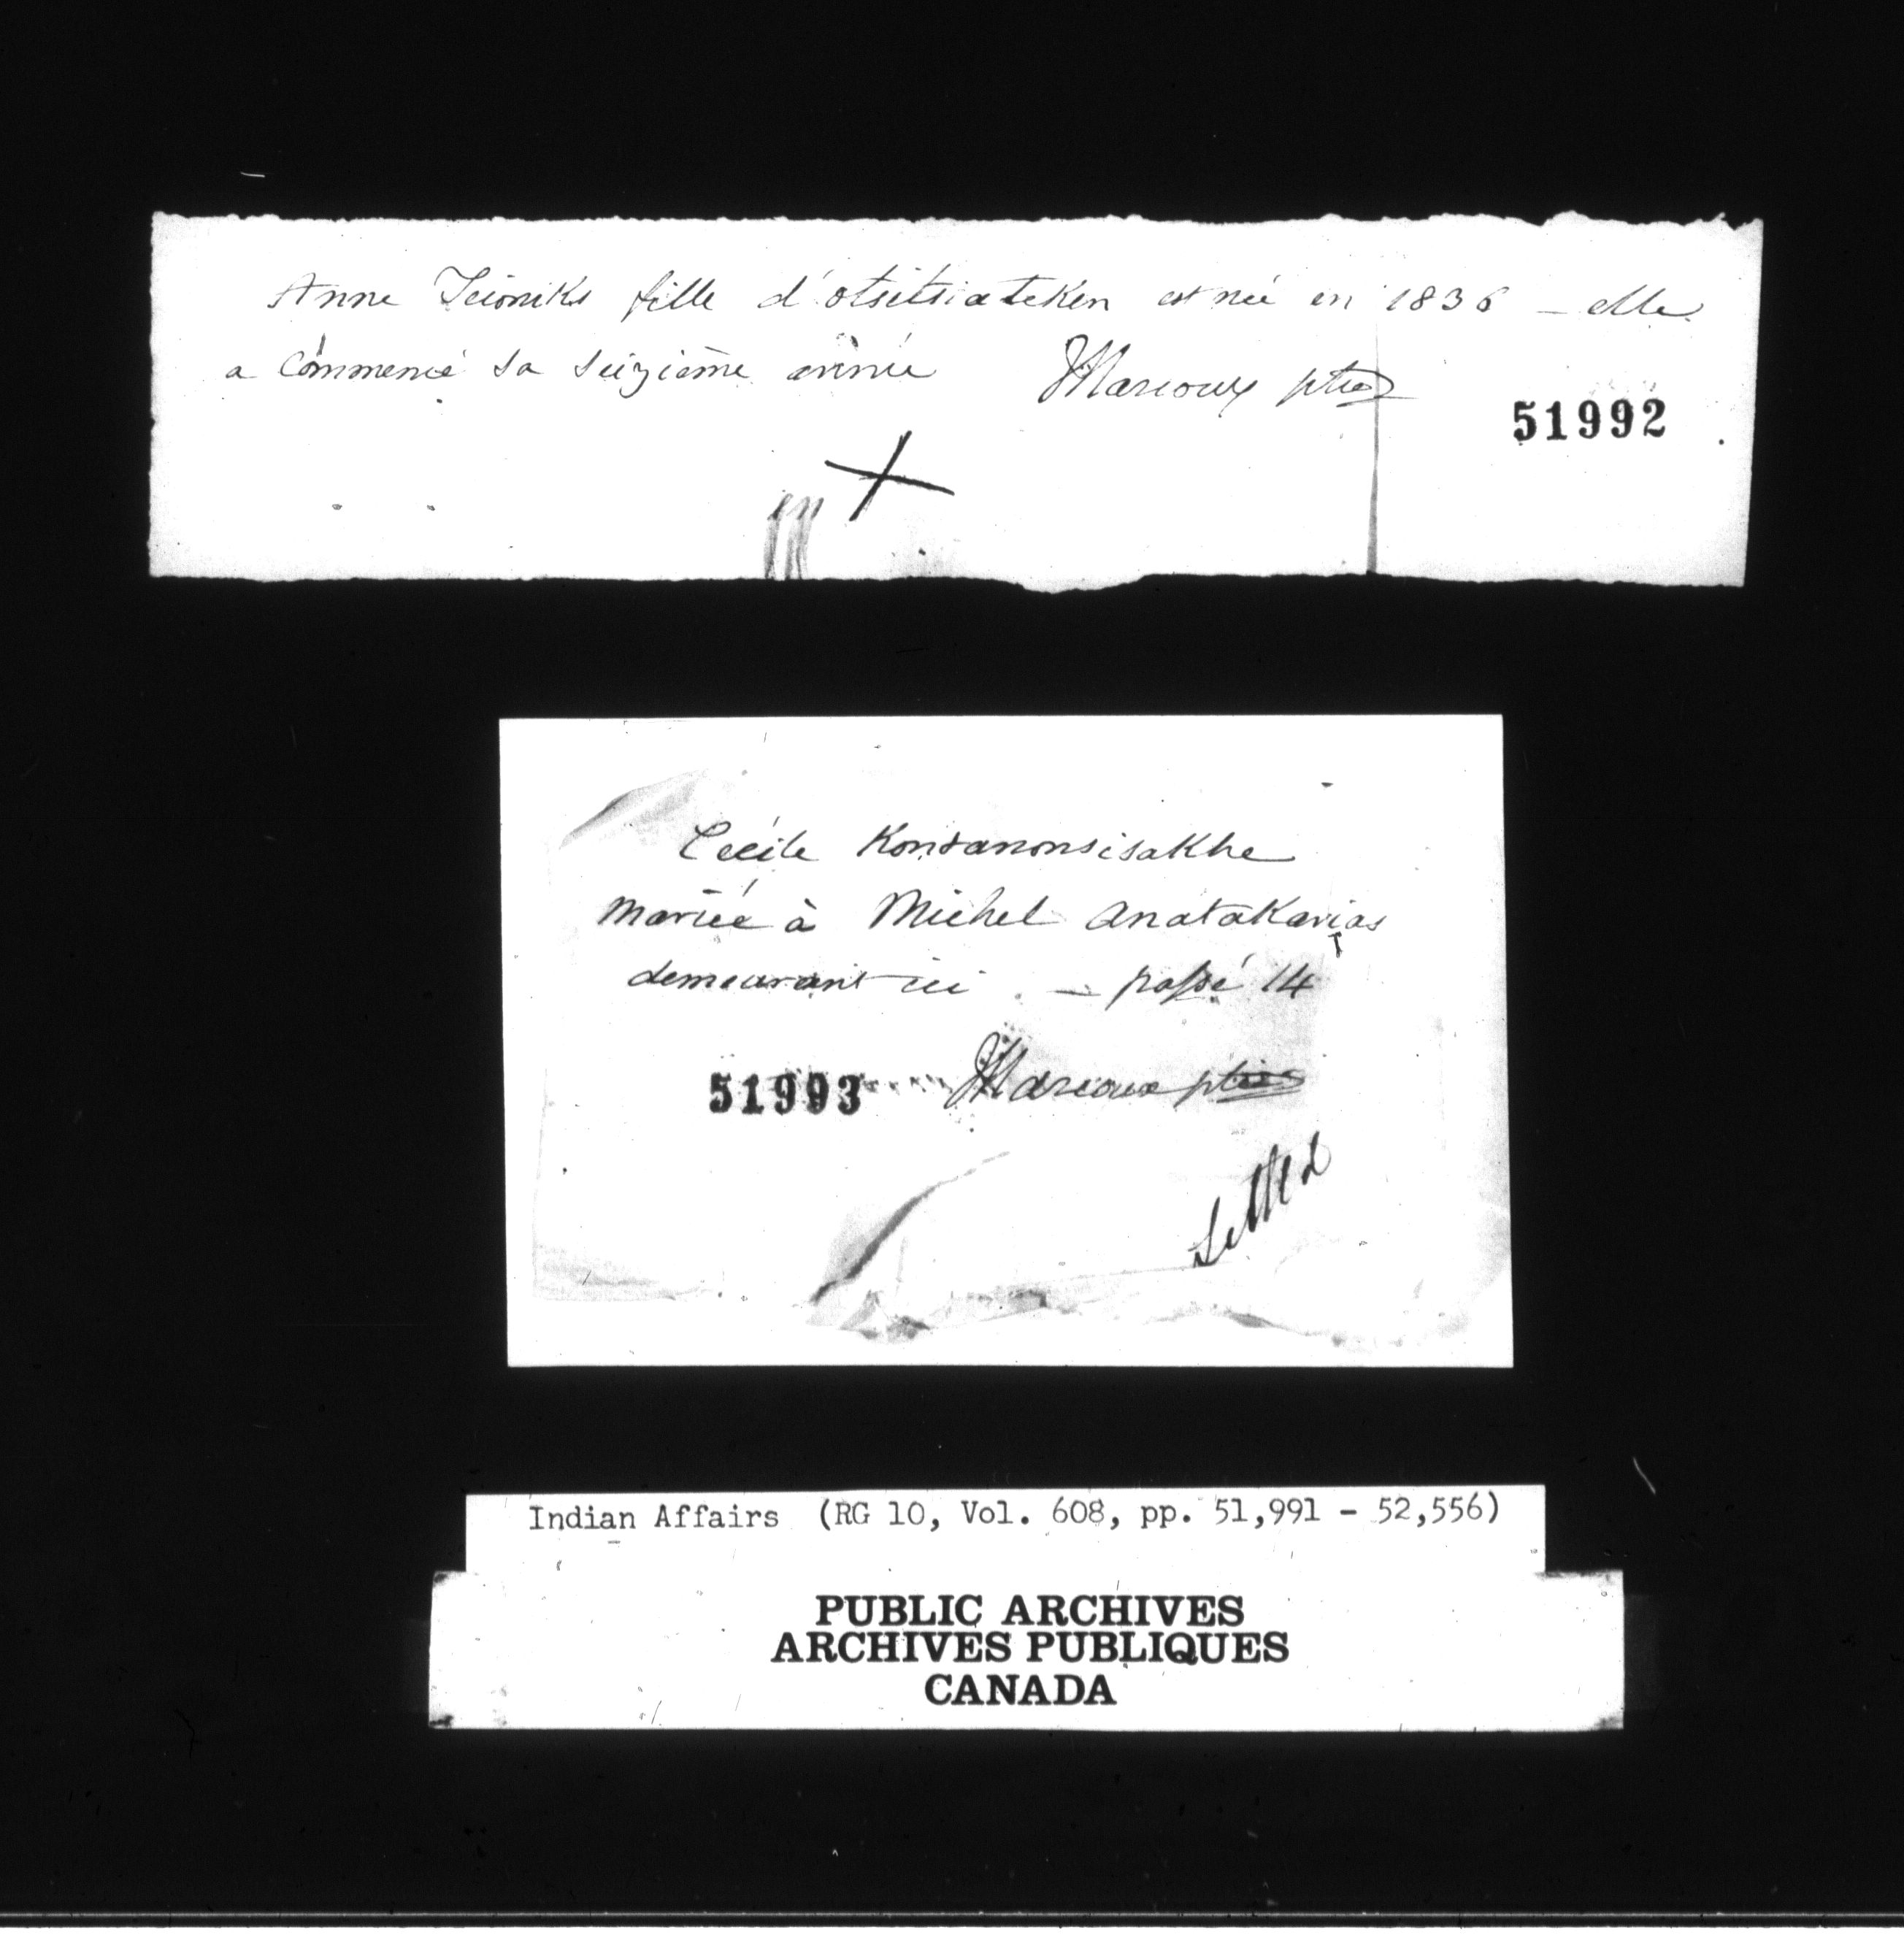 Anne Teioniks fille d'otsitsiateken est née en 1836 _ elle
a Commencé sa seizième année JMarcoux ptre
51992
Cécile Kontanonsisakhe
mariée à Michel anatakarias
demeurant ici _ passé 14
51993 JMarcoux ptre
Settled
Indian Affairs (RG 10, Vol. 608, pp. 51,991 - 52,556)
PUBLIC ARCHIVES
ARCHIVES PUBLIQUES
CANADA